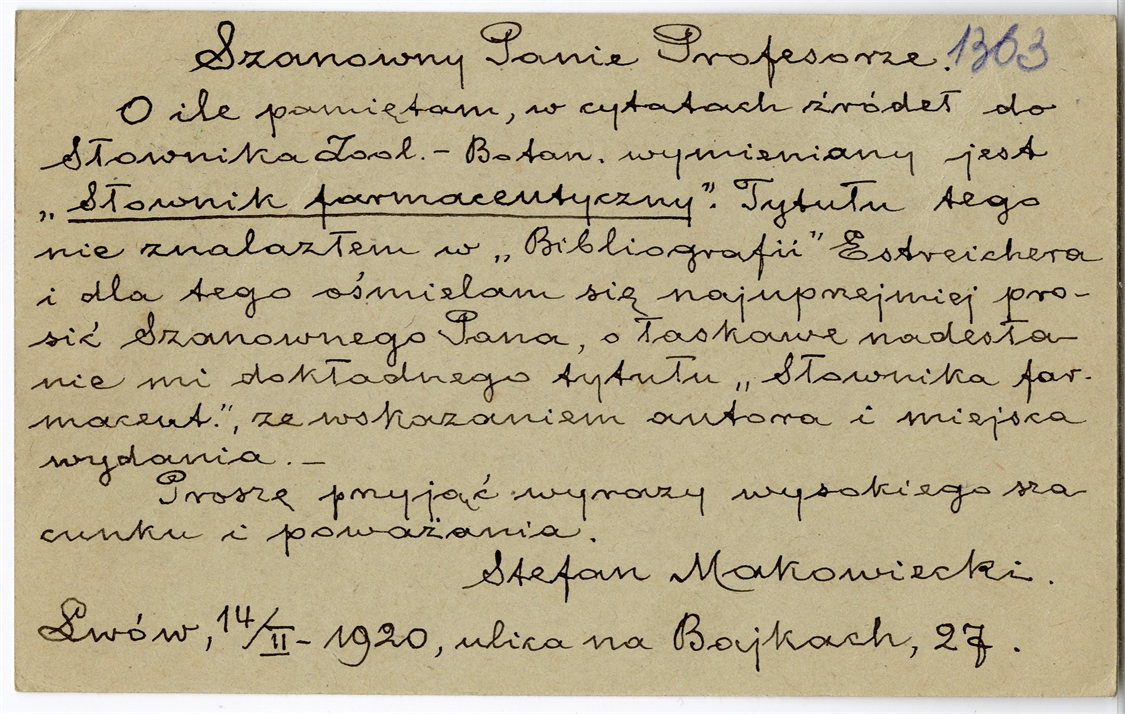 Szanowny Panie Profesorze. 1363
O ile pamiętam, w cytatach źródeł do
Słownika Zool.- Botan. wymieniany jest
„Słownik farmaceutyczny”. Tytułu tego
nie znalazłem w „Bibliografii” Estreichera
i dla tego ośmielam się najuprzejmiej pro-
sić Szanownego Pana, o łaskawe nadesła-
nie mi dokładnego tytułu „Słownika far-
maceut.”, ze wskazaniem autora i miejsca
wydania. –
Proszę przyjąć wyrazy wysokiego sza-
cunku i poważania.
Stefan Makowiecki.
Lwów, 14/II – 1920, ulica na Bajkach, 27.